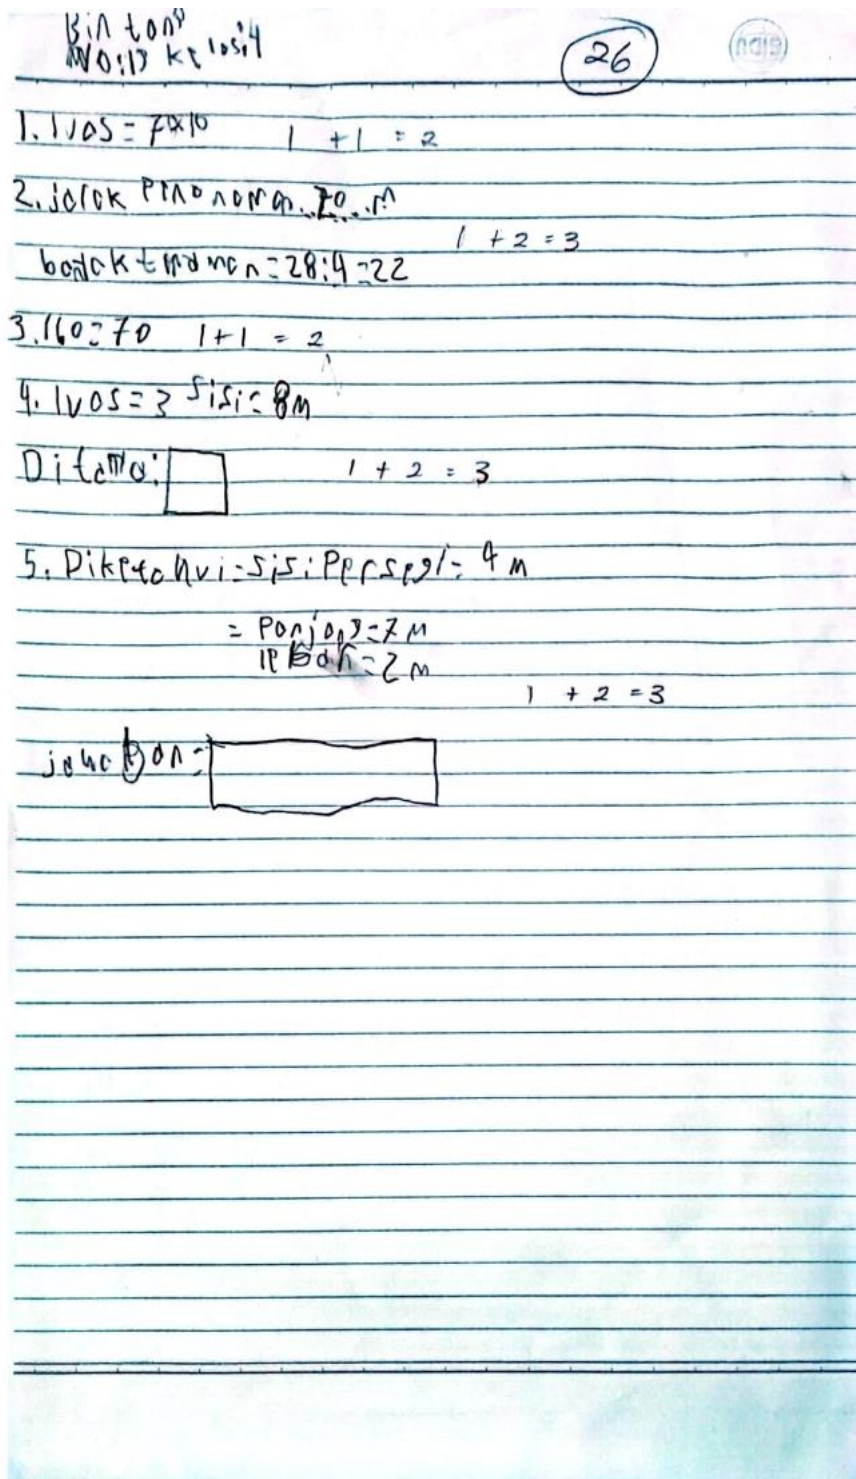 Bintang
No:13 kelas:4
26
1. luas = 7x10 1 + 1 = 2
2. jarak m
1 + 2 = 3
banyak tanaman = 28:4 = 22
3. 160 = 70 1 + 1 = 2
4. luas = 3 sisi = 8m
Ditanya: 1 + 2 = 3
5. Diketahui = sisi persegi = 4 m
= Panjang = 7 m
lebar = 2 m
1 + 2 = 3
jawaban =